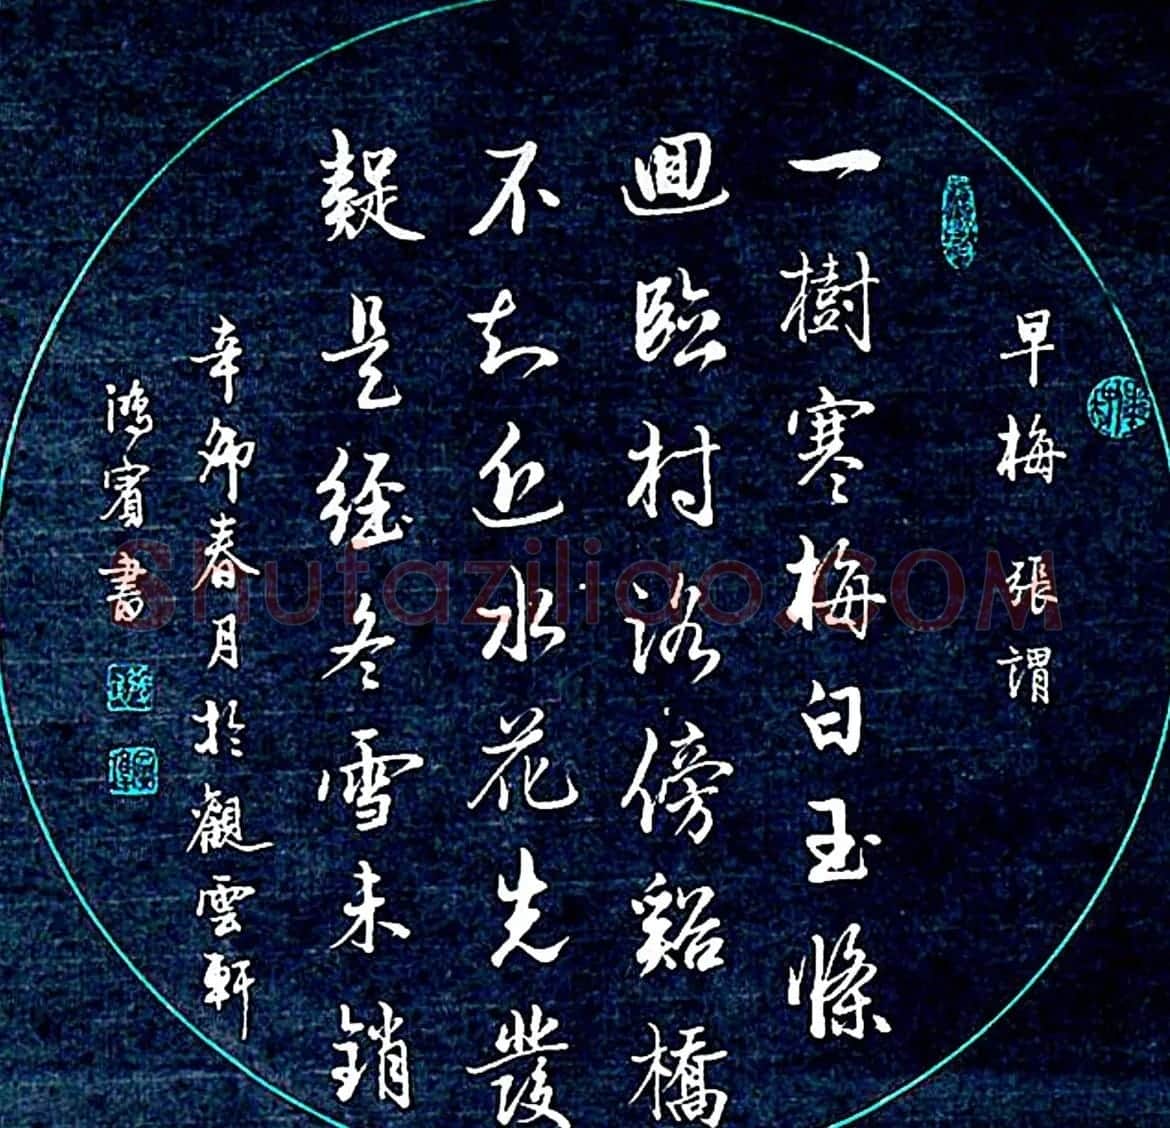 早梅 張謂
一樹寒梅白玉條
迴臨村路傍谿橋
不知近水花先發
疑是經冬雪未銷
辛卯春月於觀雲軒
鴻賓書
Shufaziliao.COM